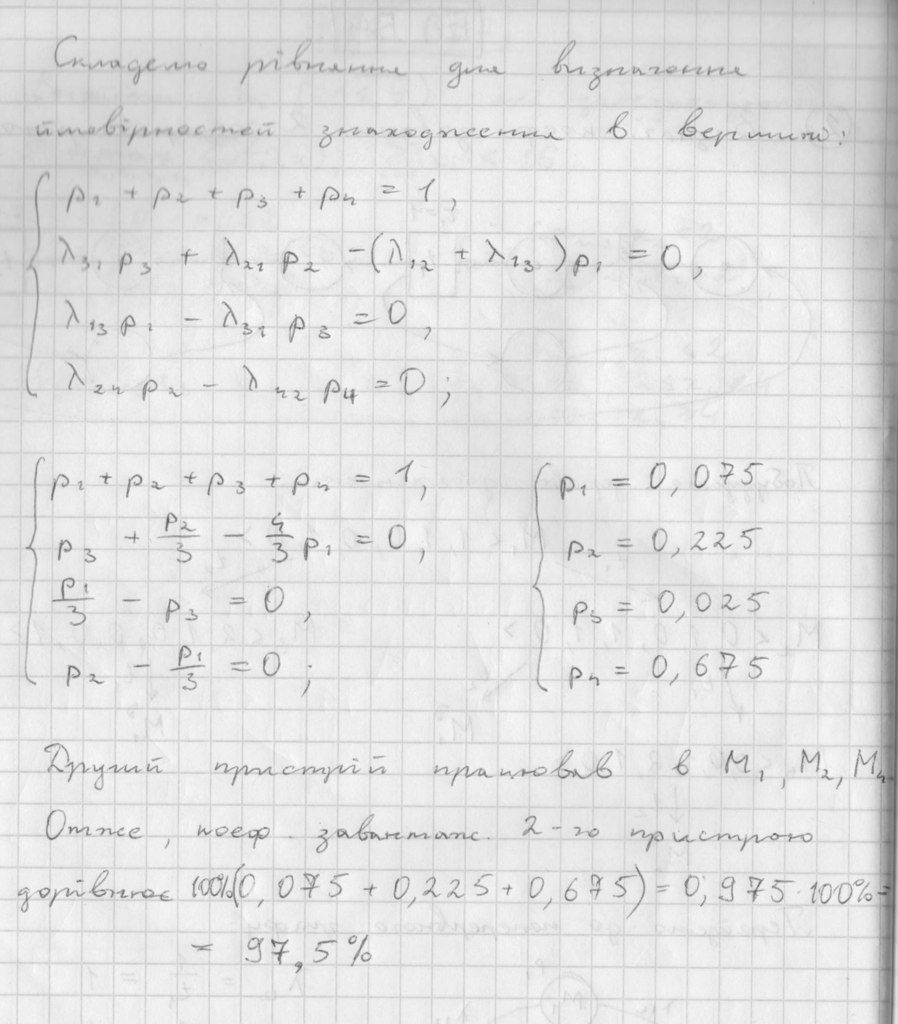 Складемо рівняння для визначення
ймовірностей знаходження в вершині:
p₁ + p₂ + p₃ + p₄ = 1,
λ₃₁ p₃ + λ₂₁ p₂ - (λ₁₂ + λ₁₃) p₁ = 0,
λ₁₃ p₁ - λ₃₁ p₃ = 0,
λ₂₄ p₂ - λ₄₂ p₄ = 0;
p₁ + p₂ + p₃ + p₄ = 1,
p₃ + p₂/3 - 4/3 p₁ = 0,
p₁/3 - p₃ = 0,
p₂ - p₁/3 = 0;
p₁ = 0,075
p₂ = 0,225
p₃ = 0,025
p₄ = 0,675
Другий пристрій працював в M₁, M₂, M₄
Отже, коеф. завантаж. 2-го пристрою
дорівнює 100%(0,075 + 0,225 + 0,675) = 0,975·100% =
= 97,5%